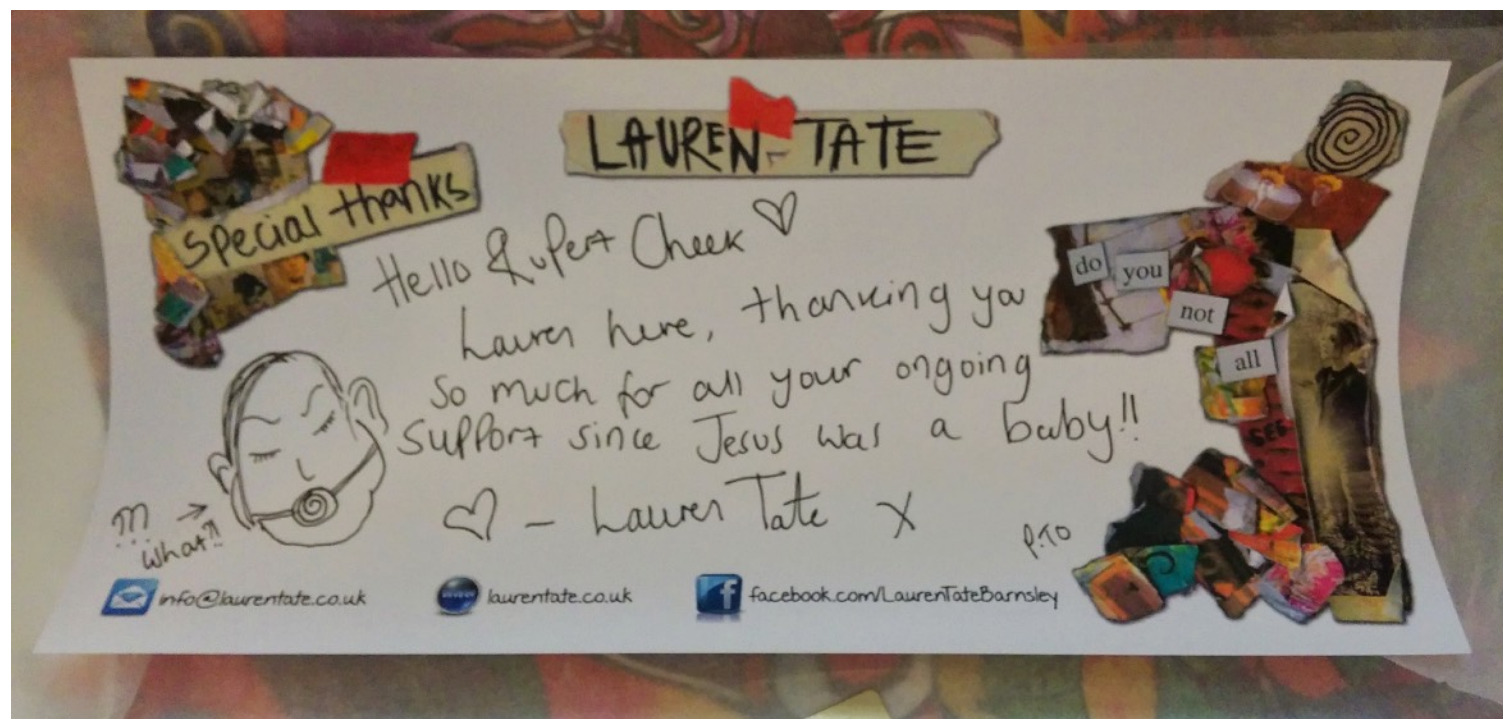 LAUREN TATE
special thanks
Hello Rupert Cheek ♡
Lauren here, thanking you
so much for all your ongoing
support since Jesus was a baby!!
♡ - Lauren Tate X
do you
not
all
???
What?!
P.T.O
info@laurentate.co.uk
laurentate.co.uk
facebook.com/LaurenTateBarnsley